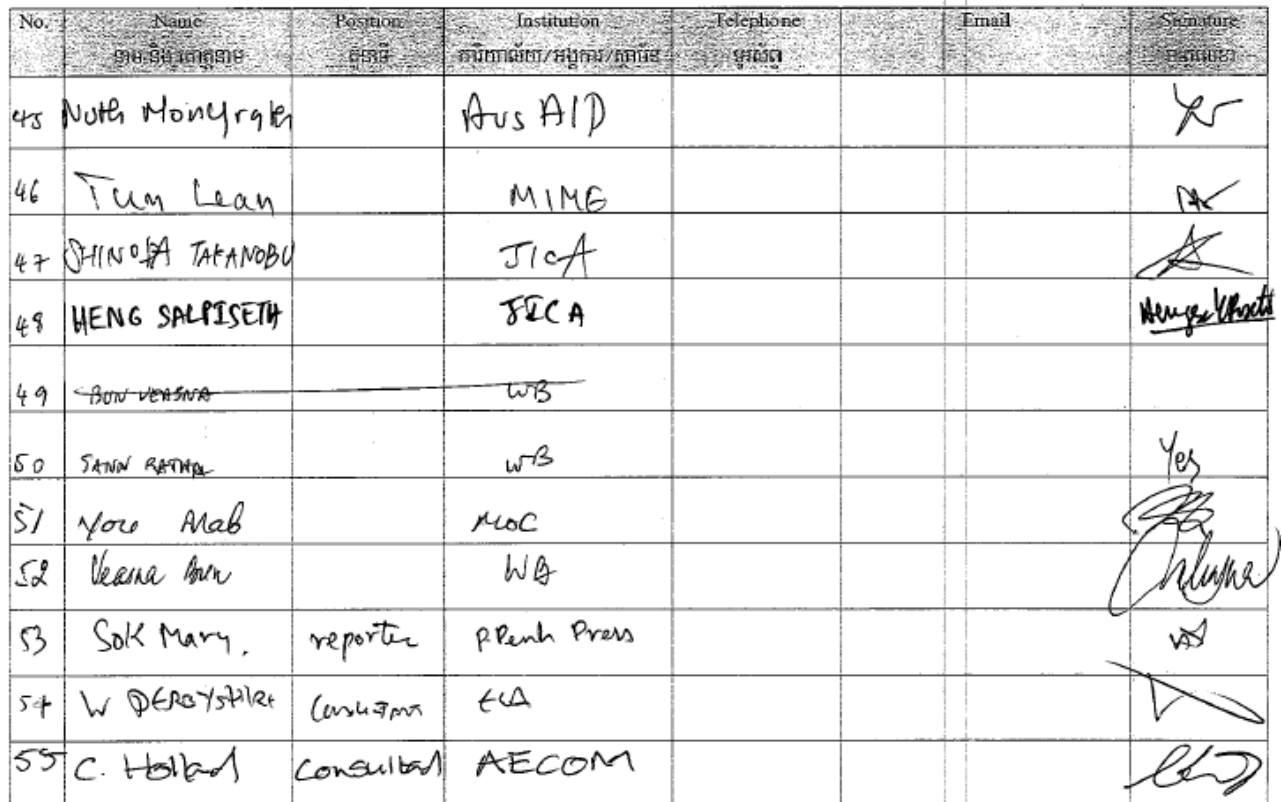 No. Name Position Institution Telephone Email Signature
នាម និង គោត្តនាម តួនាទី ការិយាល័យ/អង្គការ/ស្ថាប័ន ទូរស័ព្ទ ហត្ថលេខា
45 Nuth Monyrath Aus AID
46 Tum Lean MIME
47 SHINODA TAKANOBU JICA
48 HENG SALPISETH JICA
49 BUN VEASNA WB
50 SANN RATHA WB Yes
51 You Arab MOC
52 Veasna Bun WB
53 Sok Mary. reporter P Penh Press
54 W DERBYSHIRE Consultant
55 C. Holland Consultant AECOM